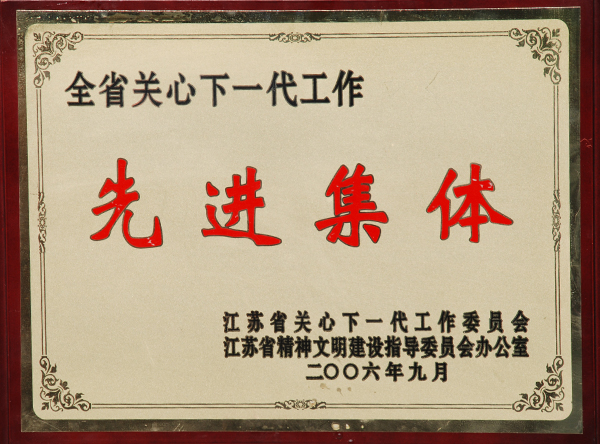 全省关心下一代工作
先进集体
江苏省关心下一代工作委员会
江苏省精神文明建设指导委员会办公室
二〇〇六年九月